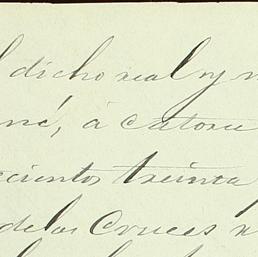 dicho real y
né, á catorce
cientos treinta
de las Cruces